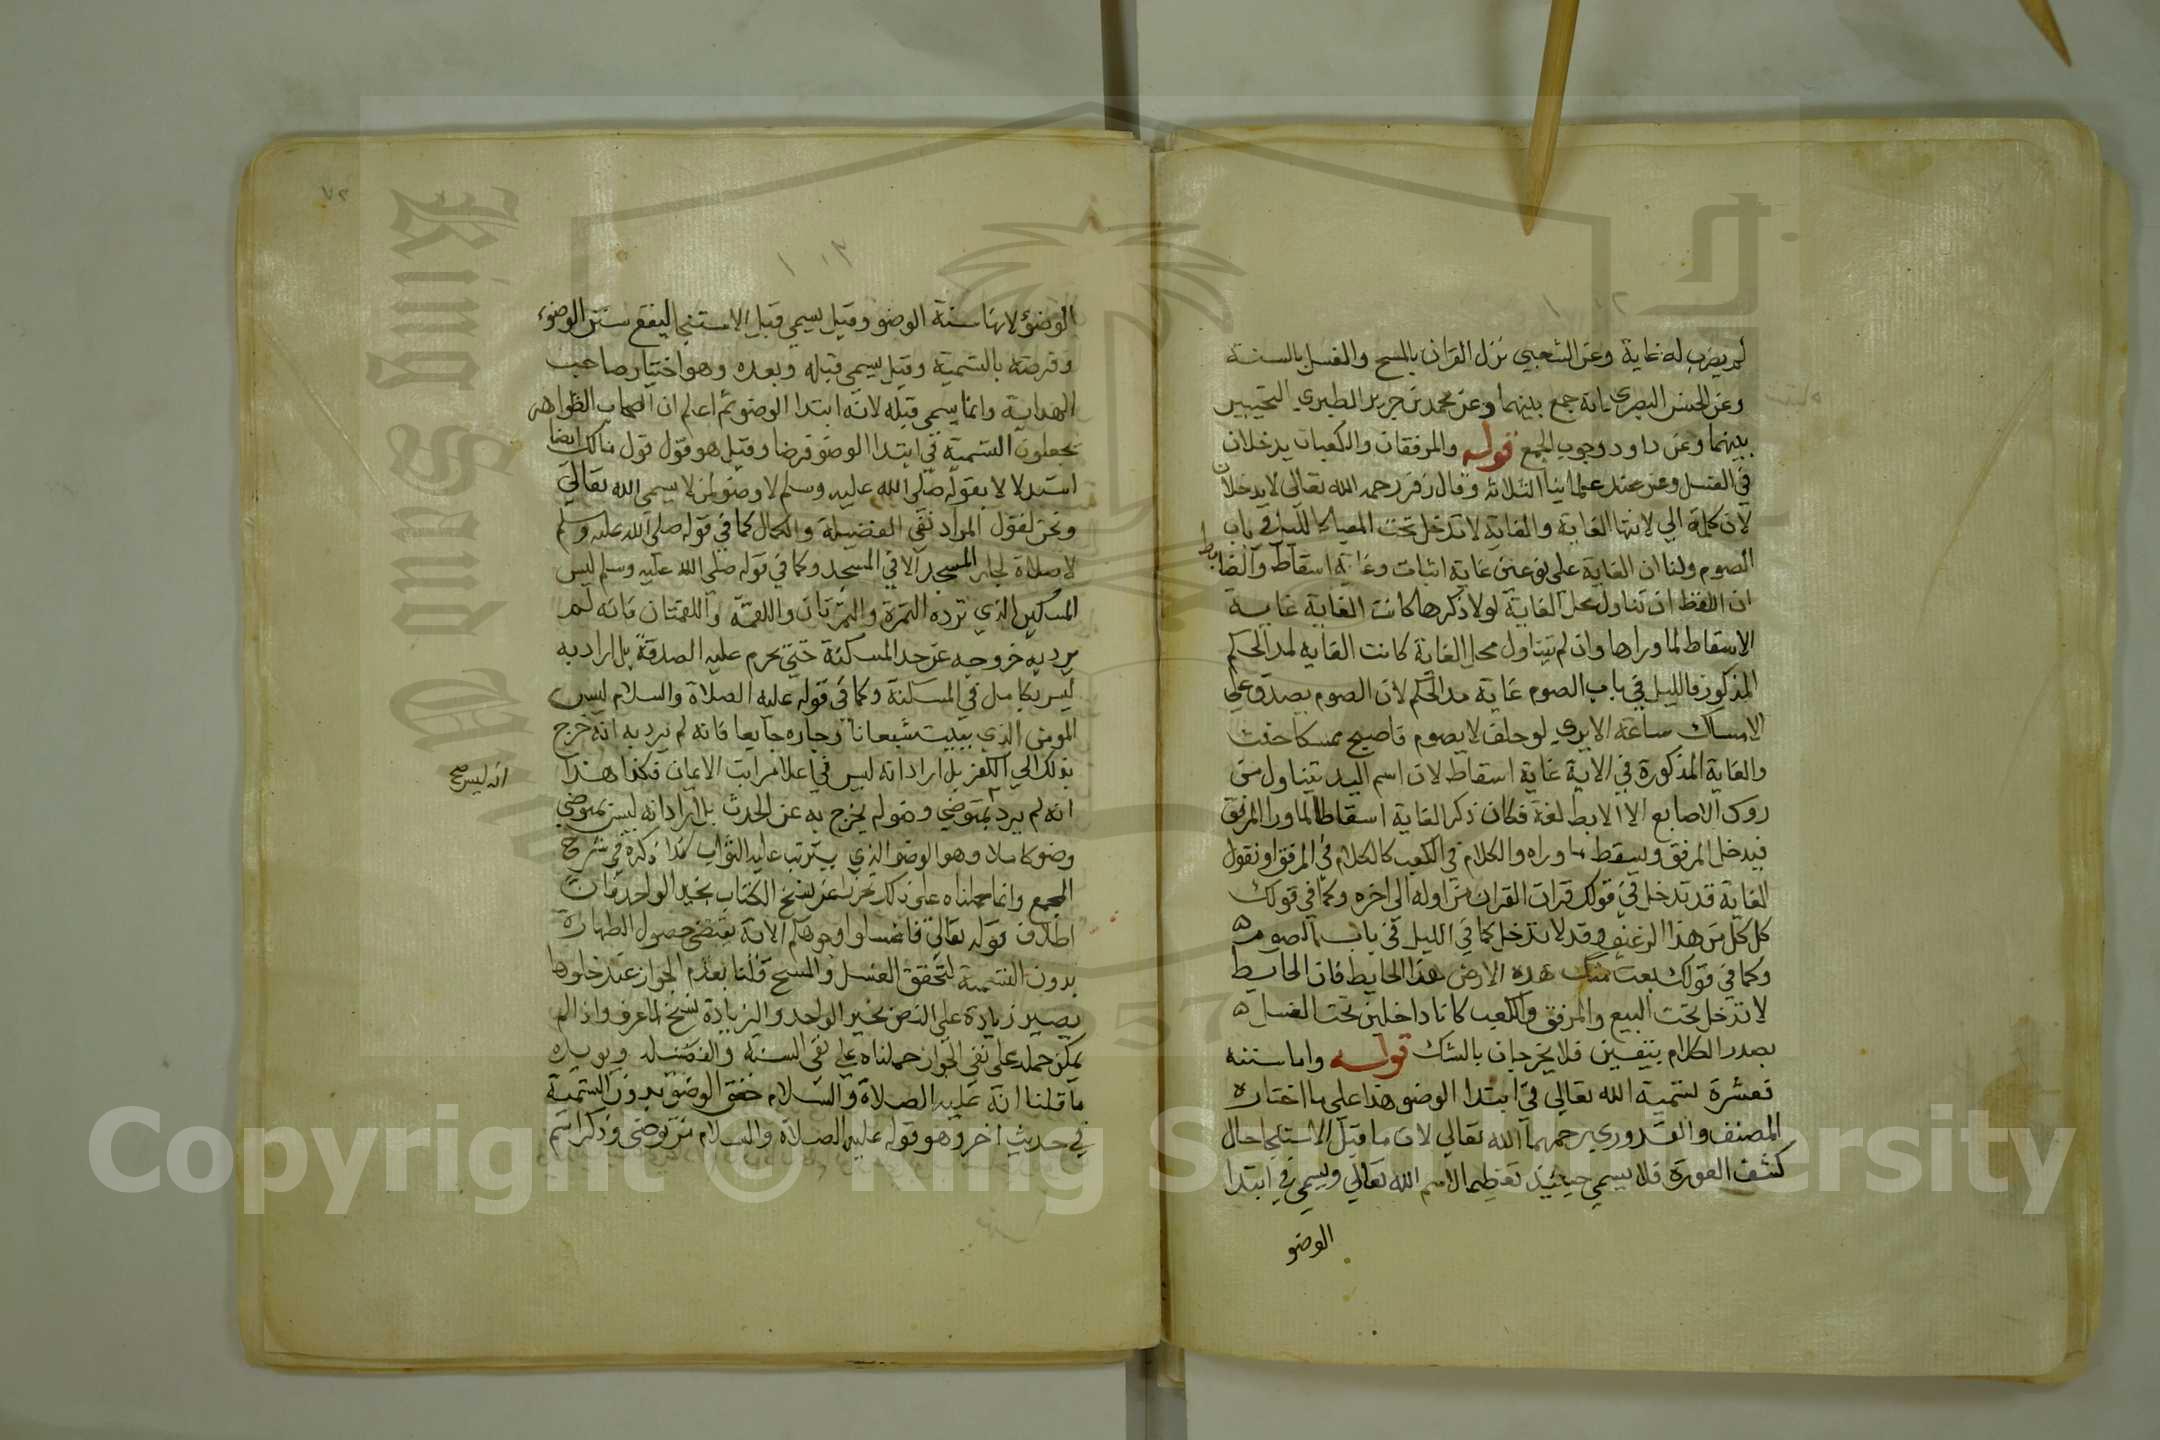 لم يضرب له غاية وعن الشعبي نزل القران بالمسح والغسل بالسنة
وعن الحسن البصري بانه جمع بينهما وعن محمد بن جرير الطبري التخيير
بينهما وعن داود وجوب الجمع قوله والمرفقان والكعبان يدخلان
في الغسل وعن عند علماينا الثلاثة وقال زفر رحمه الله تعالى لا يدخلان
لان كلمة الي لانتها الغاية والغاية لا تدخل تحت المغيا كالليل في باب
الصوم ولنا ان الغاية علي نوعين غاية اثبات وغاية اسقاط والضابط
ان اللفظ ان تناول محل الغاية لولا ذكرها كانت الغاية غاية
الاسقاط لما وراها وان لم يتناول محل الغاية كانت الغاية لمد الحكم
المذكور فالليل في باب الصوم غاية مد الحكم لان الصوم يصدق علي
الامساك ساعة الا يري لو حلف لا يصوم فاصبح ممسكا حنث
والغاية المذكورة في الاية غاية اسقاط لان اسم اليد يتناول من
روس الاصابع الا الابط لغة فكان ذكر الغاية اسقاطا لما ورا المرفق
فيدخل المرفق ويسقط ما وراه والكلام في الكعب كالكلام في المرفق او نقول
الغاية قد تدخل في قولك قرات القران من اوله الى اخره وكما في قولك
كل كل من هذا الرغيف وقد لا تدخل كما في الليل في باب الصوم
وكما في قولك بعت منك هذه الارض هذا الحايط فان الحايط
لا تدخل تحت البيع والمرفق والكعب كانا داخلين تحت الغسل
بصدر الكلام بيقين فلا يخرجان بالشك قوله واما سننه
فعشرة تسمية الله تعالي في ابتدا الوضو هذا علي ما اختاره
المصنف والقدوري رحمهما الله تعالي لان ما قبل الاستنجا حال
كشف العورة فلا يسمي حينئذ تعظيما لاسم الله تعالي ويسمي في ابتدا
الوضو
٧٢
الوضوء لانها سنة الوضو وقيل يسمي قبل الاستنجا ليقع سنن الوضوء
وفرضه بالتسمية وقيل يسمي قبله وبعده وهو اختيار صاحب
الهداية وانما يسمي قبله لانه ابتدا الوضو ثم اعلم ان اصحاب الظواهر
يجعلون التسمية في ابتدا الوضو فرضا وقيل هو قول قول مالك ايضا
استدلالا بقوله صلى الله عليه وسلم لا وضو لمن لا يسمي الله تعالى
ونحن نقول المراد نفي الفضيلة والكمال كما في قوله صلى الله عليه وسلم
لا صلاة لجار المسجد الا في المسجد وكما في قوله صلى الله عليه وسلم ليس
المسكين الذي ترده التمرة والتمرتان واللقمة واللقمتان فانه لم
يرد به خروجه عن حد المسكنة حتي يحرم عليه الصدقة بل اراد به
ليس بكامل في المسكنة وكما في قوله عليه الصلاة والسلام ليس
المومن الذي يبيت شبعانا وجاره جايعا فانه لم يرد به انه خرج
بذلك الي الكفر بل اراد انه ليس في اعلا مراتب الايمان فكذا هذا
انه ليس صح
انه لم يرد بمتوضي وضو لم يخرج به عن الحدث بل اراد انه ليس بمتوضي
وضو كاملا وهو الوضو الذي يترتب عليه الثواب كذا ذكره في شرح
المجمع وانما حملناه على ذلك تحرزا عن نسخ الكتاب بخبر الواحد فان
اطلاق قوله تعالى فاغسلوا وجوهكم الاية يقتضي حصول الطهارة
بدون التسمية لتحقق الغسل والمسح قلنا بعدم الجواز عند خلوها
يصير زيادة علي النص بخبر الواحد والزيادة نسخ لما عرف واذا لم
يمكن حمله على نفي الجواز حملناه علي نفي السنة والفضيلة ويويده
ما قلنا انه عليه الصلاة والسلام حقق الوضو بدون التسمية
في حديث اخر وهو قوله عليه الصلاة والسلام من توضي وذكر اسم
Copyright © King Saud University
King Saud
1957